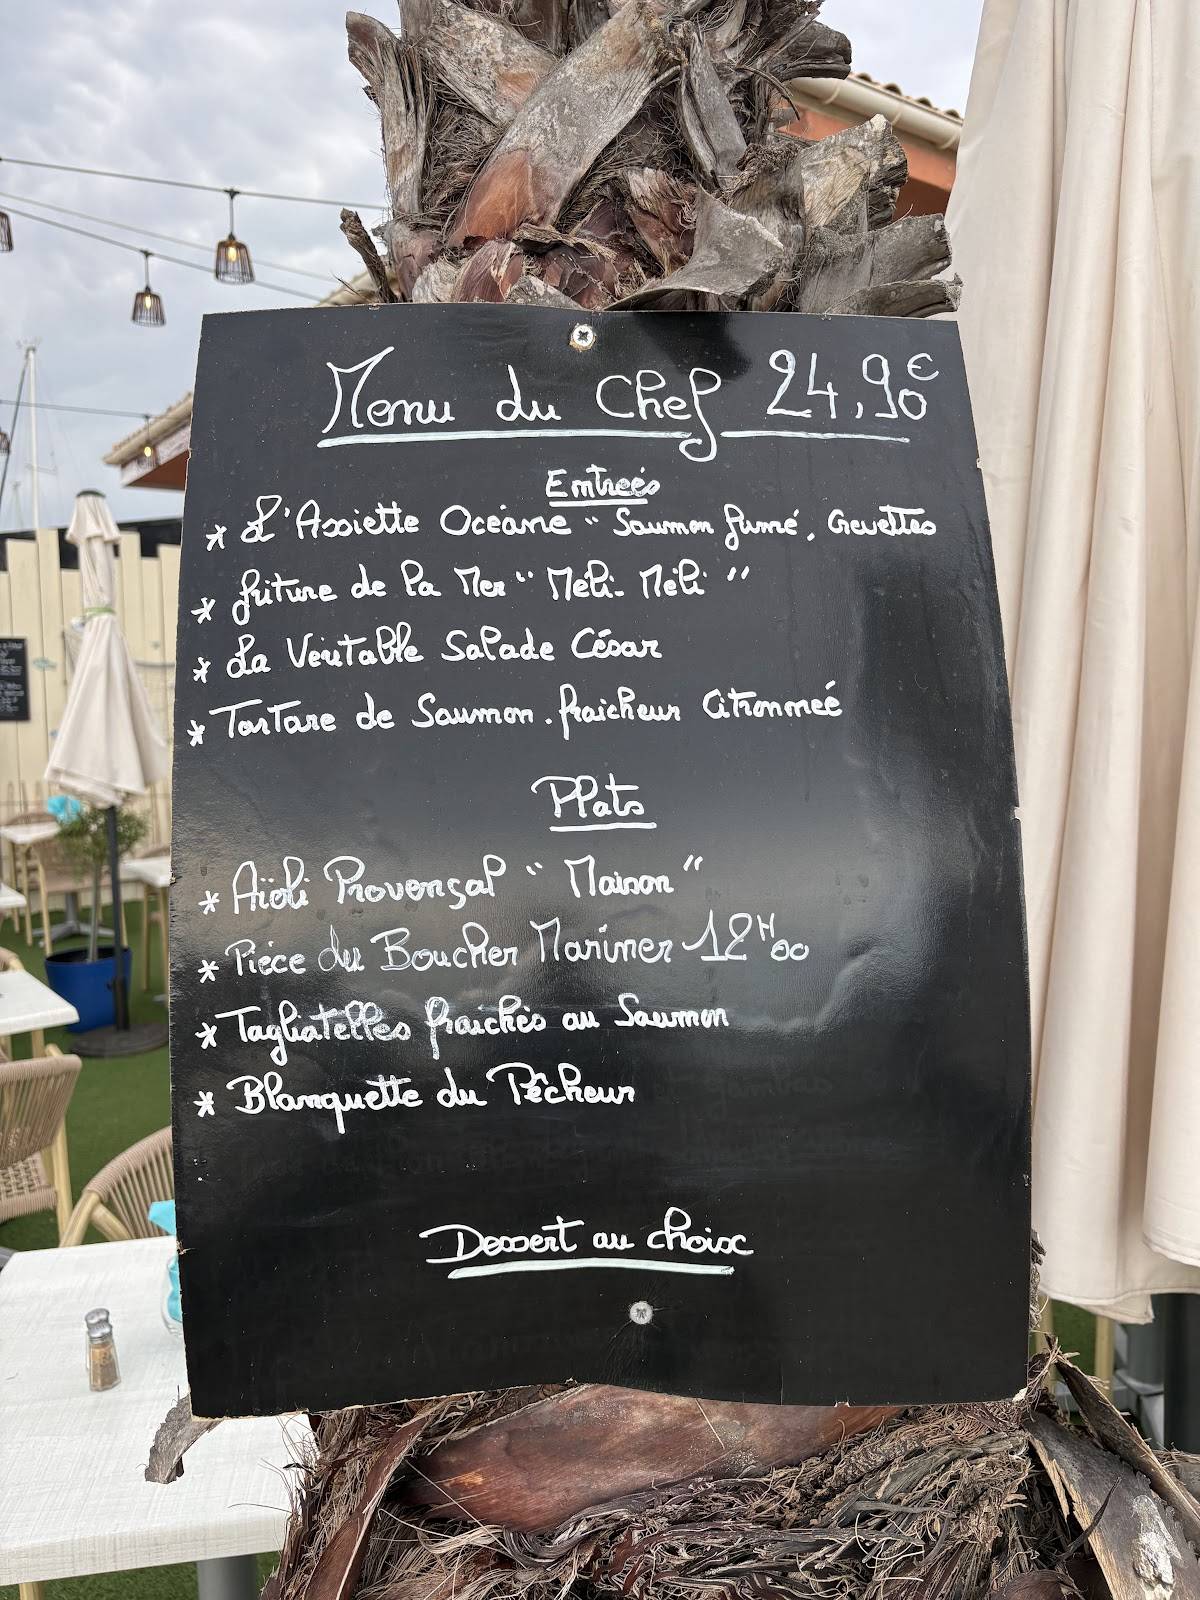 Menu du Chef 24,90€
Entrées
* L'Assiette Océane "Saumon fumé, Crevettes
* friture de la Mer "Méli-Méli"
* La Véritable Salade César
* Tartare de Saumon. fraicheur Citronnée
Plats
* Aïoli Provençal "Maison"
* Pièce du Boucher Mariner 12H00
* Tagliatelles fraichés au Saumon
* Blanquette du Pêcheur
Dessert au choix